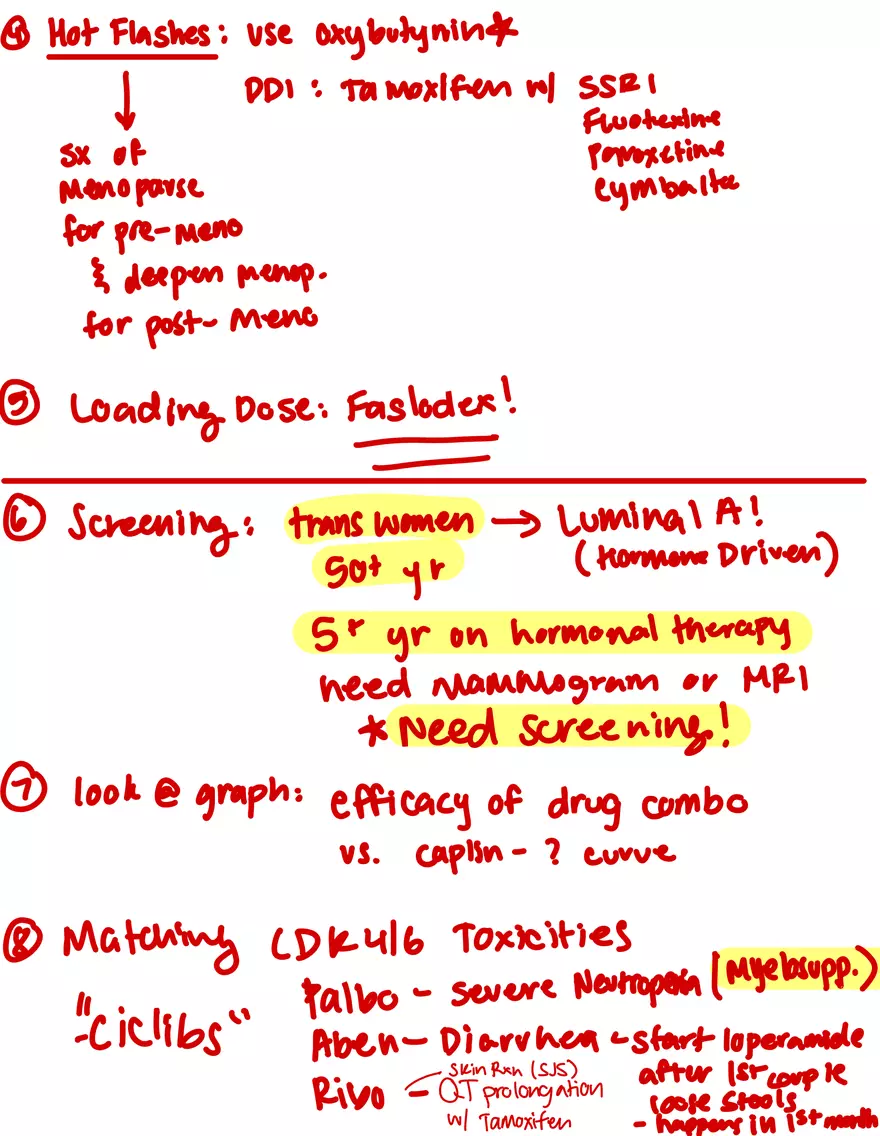 ④ Hot Flashes: use oxybutynin*
DDI: Tamoxifen w/ SSRI
Fluotexine
Paroxetine
Cymbalta
↓
sx of
Menopause
for pre-Meno
& deepen menop.
for post-Meno
⑤ Loading Dose: Faslodex!
⑥ Screening: trans women → Luminal A!
50+ yr (Hormone Driven)
5+ yr on hormonal therapy
need mammogram or MRI
* Need screening!
⑦ look @ graph: efficacy of drug combo
vs. caplan - ? curve
⑧ Matching CDK4/6 Toxicities
"-ciclibs"
Palbo - severe Neutropenia (Myelosupp.)
Abem - Diarrhea - start loperamide
after 1st couple
loose stools
- happens in 1st month
Ribo - skin Rxn (SJS)
QT prolongation
w/ Tamoxifen